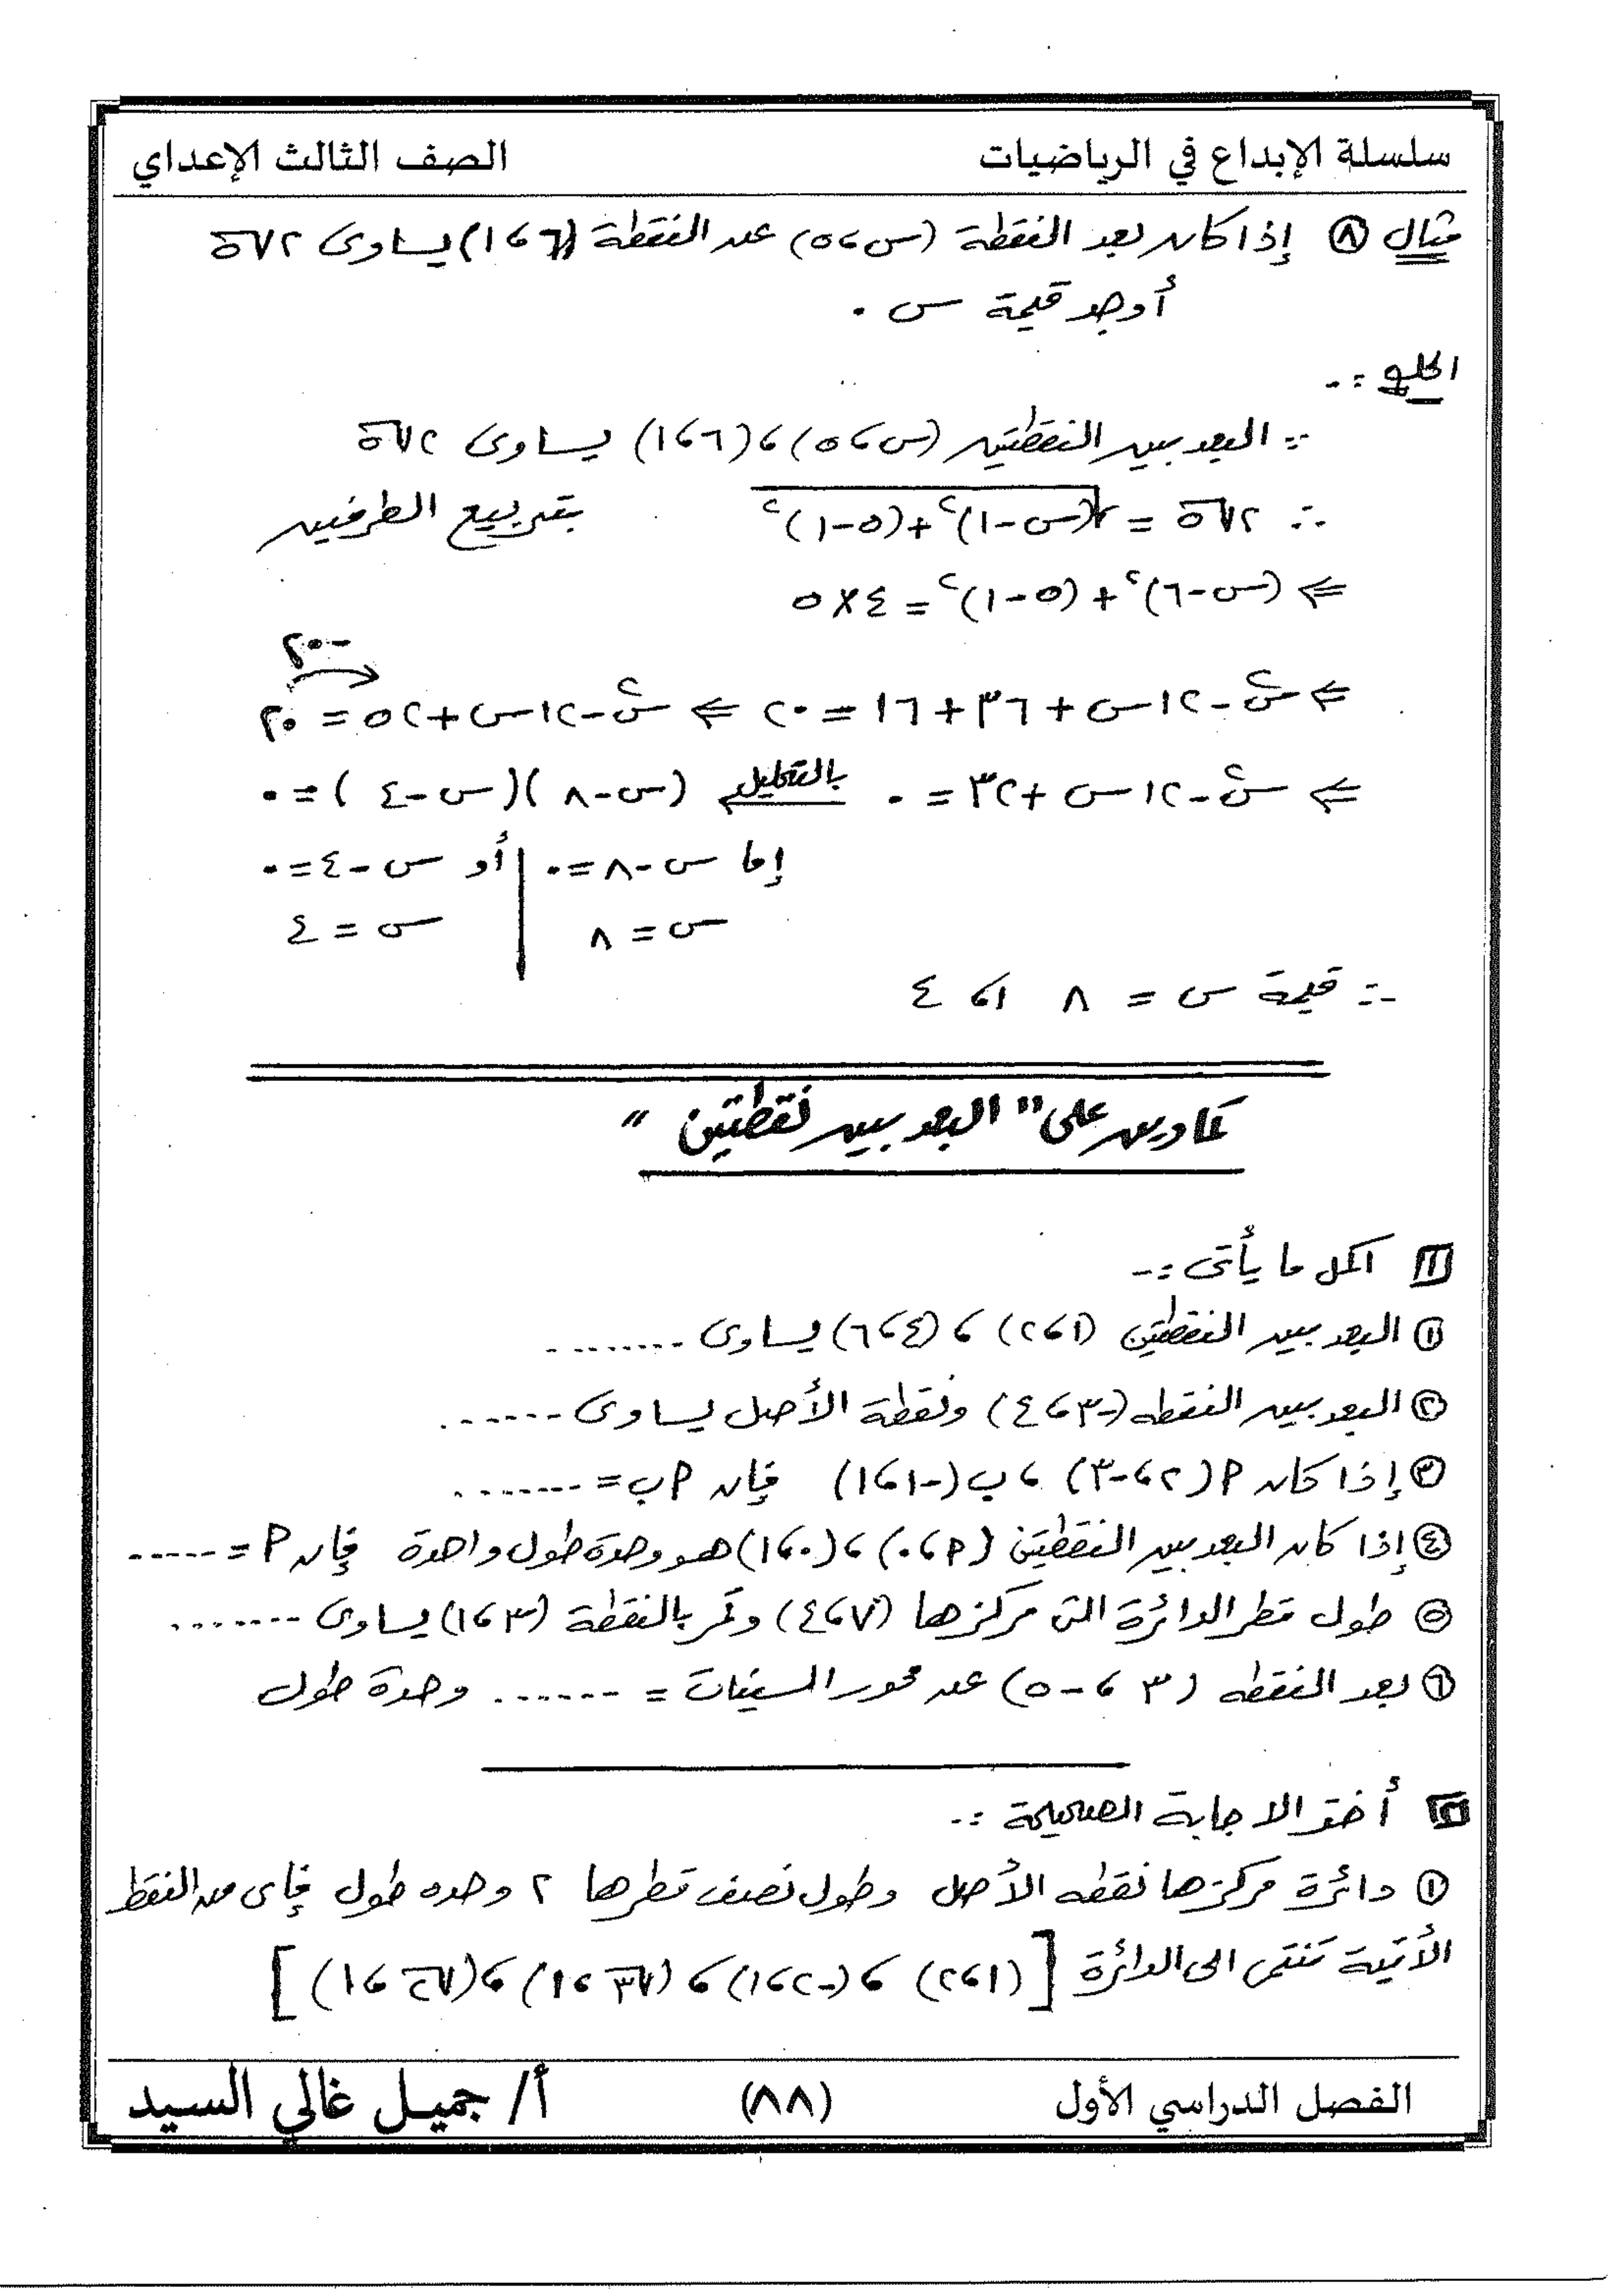 سلسلة الإبداع في الرياضيات
الصف الثالث الإعداي
مثال (٨) إذا كان بعد النقطة (س ، ٥) عن النقطة (٦ ، ١) يساوى ٢√٥
أوجد قيمة س .
الحل :-
∵ البعد بين النقطتين (س ، ٥) ، (٦ ، ١) يساوى ٢√٥
∴ ٢√٥ = √(س-١)² + (٥-١)² بتربيع الطرفين
⇐ (س-٦)² + (٥-١)² = ٤×٥
-٢٠
⇐ س² - ١٢س + ٣٦ + ١٦ = ٢٠ ⇐ س² - ١٢س + ٥٢ = ٢٠
⇐ س² - ١٢س + ٣٢ = ٠ بالتحليل (س-٨)(س-٤) = ٠
إما س-٨=٠ | أو س-٤=٠
س = ٨ | س = ٤
∴ قيمة س = ٨ ، ٤
تمارين على " البعد بين نقطتين "
[١] اكمل ما يأتى :-
(١) البعد بين النقطتين (١ ، ٢) ، (٤ ، ٦) يساوى ........
(٢) البعد بين النقطه (-٣ ، ٤) ونقطة الأصل يساوى .......
(٣) إذا كان P(٢ ، -٣) ، ب(-١ ، ١) فإن P ب = ........
(٤) إذا كان البعد بين النقطتين (P ، ٠) ، (٠ ، ١) هو وحدة طول واحدة فإن P = -----
(٥) طول قطر الدائرة التى مركزها (٧ ، ٤) وتمر بالنقطة (٣ ، ١) يساوى ........
(٦) بعد النقطه (٣ ، -٥) عن محور السينات = ....... وحدة طول
[٢] أختر الاجابة الصحيحة :-
(١) دائرة مركزها نقطه الأصل وطول نصف قطرها ٢ وحده طول فإى من النقط
الأتية تنتمى الى الدائرة [(١ ، ٢) ، (-٢ ، ١) ، (√٣ ، ١) ، (√٢ ، ١)]
الفصل الدراسي الأول
(٨٨)
أ/ جميل غالي السيد